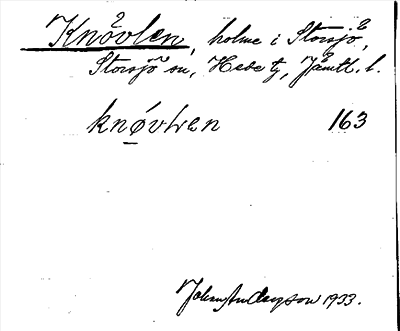 Knövlen, holme i Storsjö,
Storsjö sn, Hede tg, Jämtl. l.
knøvlen 163
1933.